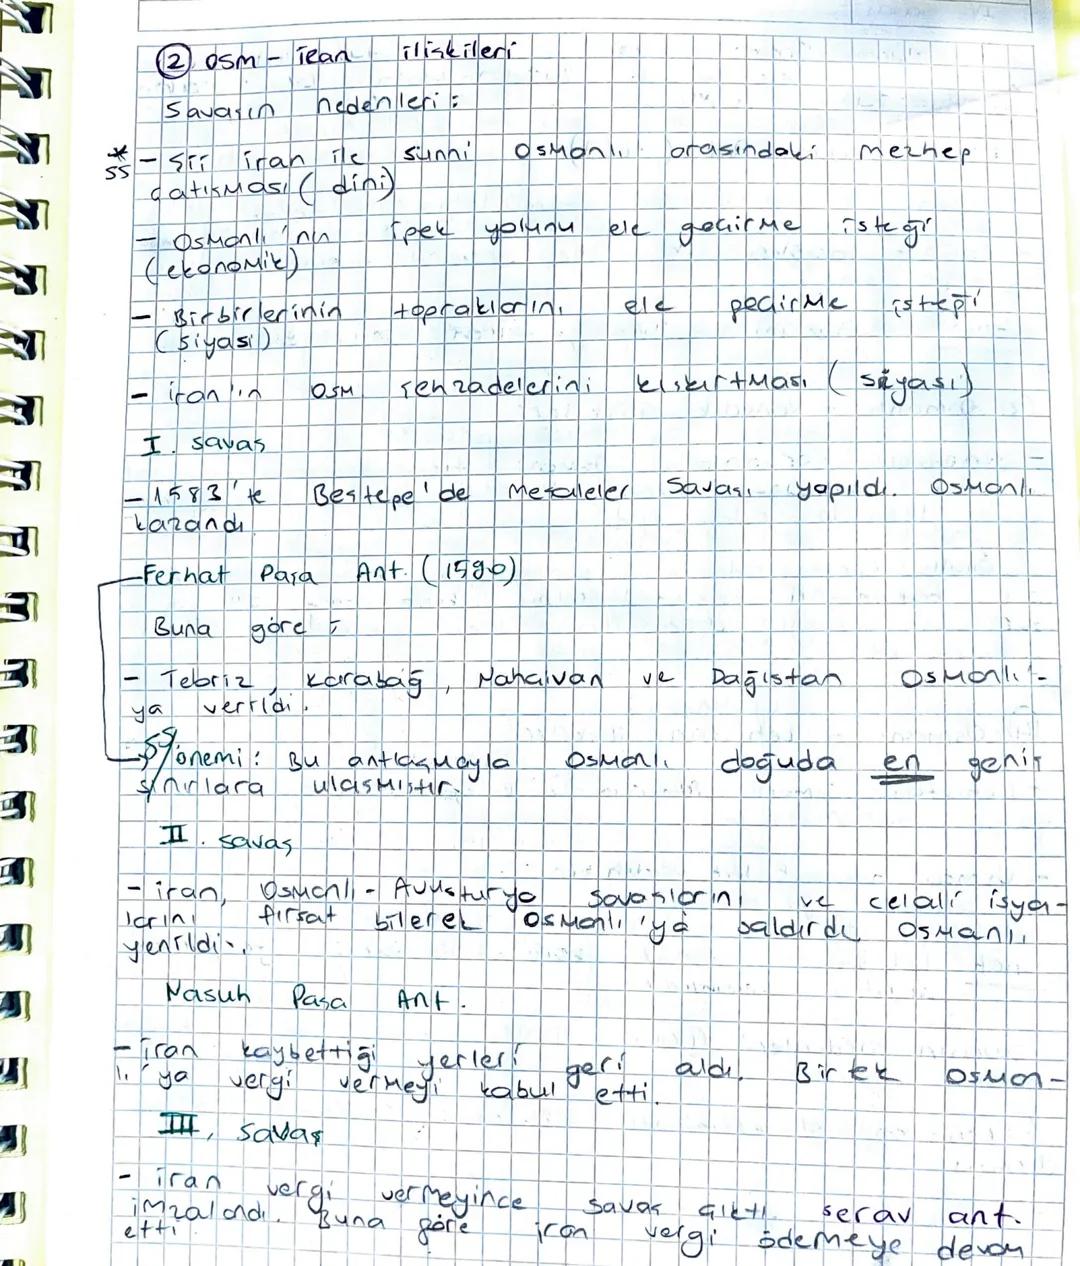 ② osm - iran ilişkileri
Savaşın nedenleri :
* - Şii iran ile sünni Osmanlı arasındaki mezhep
SS çatışması ( dini )
- Osmanlı'nın İpek yolunu ele geçirme isteği
( ekonomik )
- Birbirlerinin topraklarını ele geçirme isteği
( siyasi )
- iran'ın OSM şehzadelerini kışkırtması ( siyasi )
I. savaş
- 1583'te Beştepe'de Meşaleler Savaşı yapıldı. Osmanlı
kazandı
Ferhat Paşa Ant. ( 1590 )
Buna göre ;
- Tebriz , Karabağ , Nahcivan ve Dağıstan Osmanlı'-
ya verildi .
SS önemi : Bu antlaşmayla Osmanlı doğuda en geniş
sınırlara ulaşmıştır.
II . savaş
- iran, Osmanlı - Avusturya savaşlarını ve celali isya-
larını fırsat bilerek Osmanlı'ya saldırdı Osmanlı
yenildi.
Nasuh Paşa Ant .
- İran kaybettiği yerleri geri aldı. Bir tek Osman-
lı'ya vergi vermeyi kabul etti.
III, savaş
- iran vergi vermeyince savaş çıktı serav ant.
imzalandı. Buna göre iran vergi ödemeye devam
etti